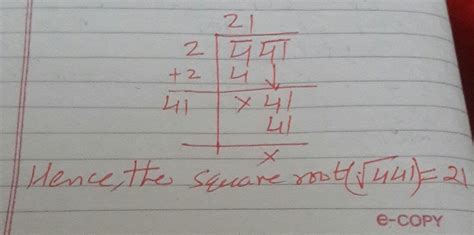 21
2 4 41
+2 4 ↓
41 × 41
41
×
Hence, the square root(√441)=21
e-COPY